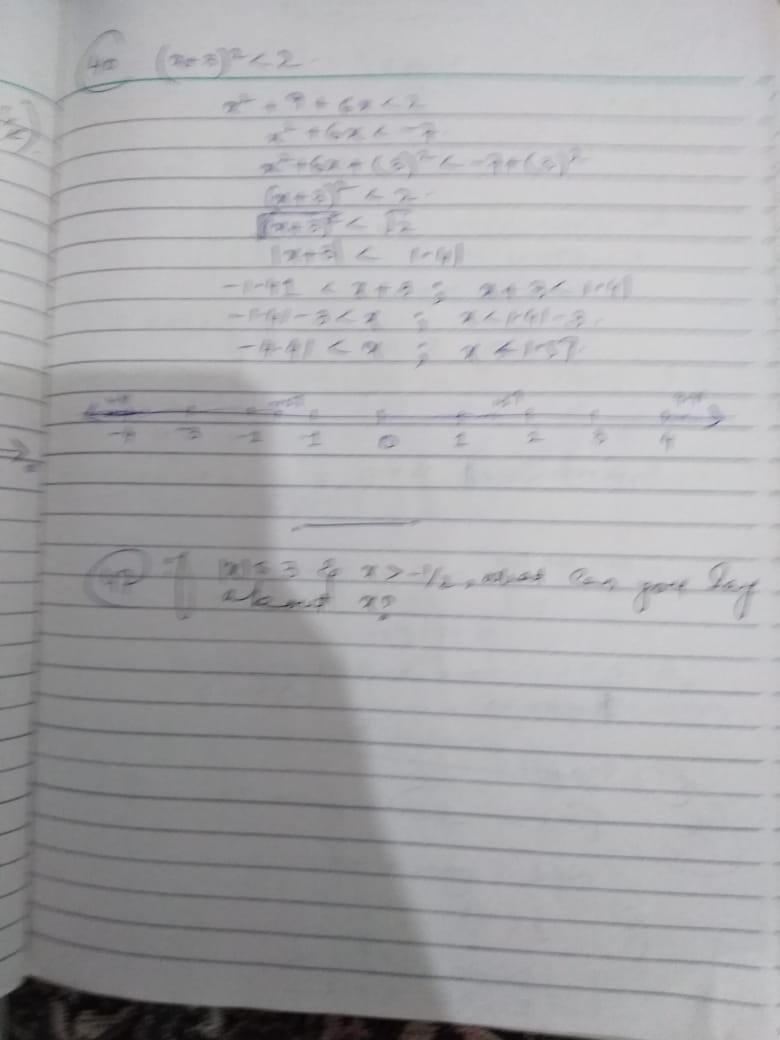 40 (x+3)² < 2
x² + 9 + 6x < 2
x² + 6x < -7
x² + 6x + (3)² < -7 + (3)²
(x+3)² < 2
√(x+3)² < √2
|x+3| < 1.41
-1.41 < x + 3 ; x + 3 < 1.41
-1.41 - 3 < x ; x < 1.41 - 3
-4.41 < x ;
-1 0 1 2 3 4
If |x| ≤ 3 & x > -1/2, what can you say
about x?